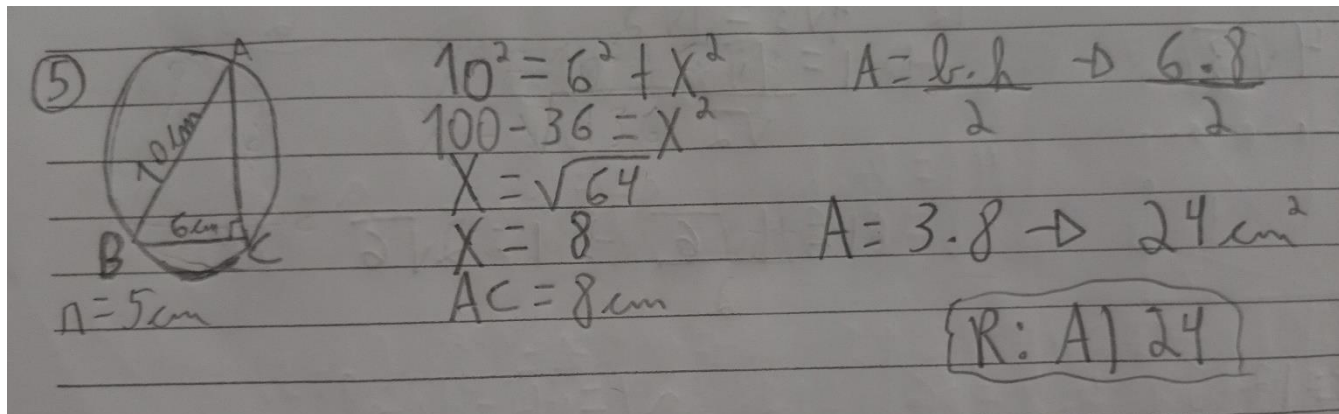 5
A
10cm
6cm
B
C
r=5cm
10² = 6² + X²
100 - 36 = X²
X = √64
X = 8
AC = 8cm
A = b.h/2 → 6.8/2
A = 3.8 → 24 cm²
R: A) 24